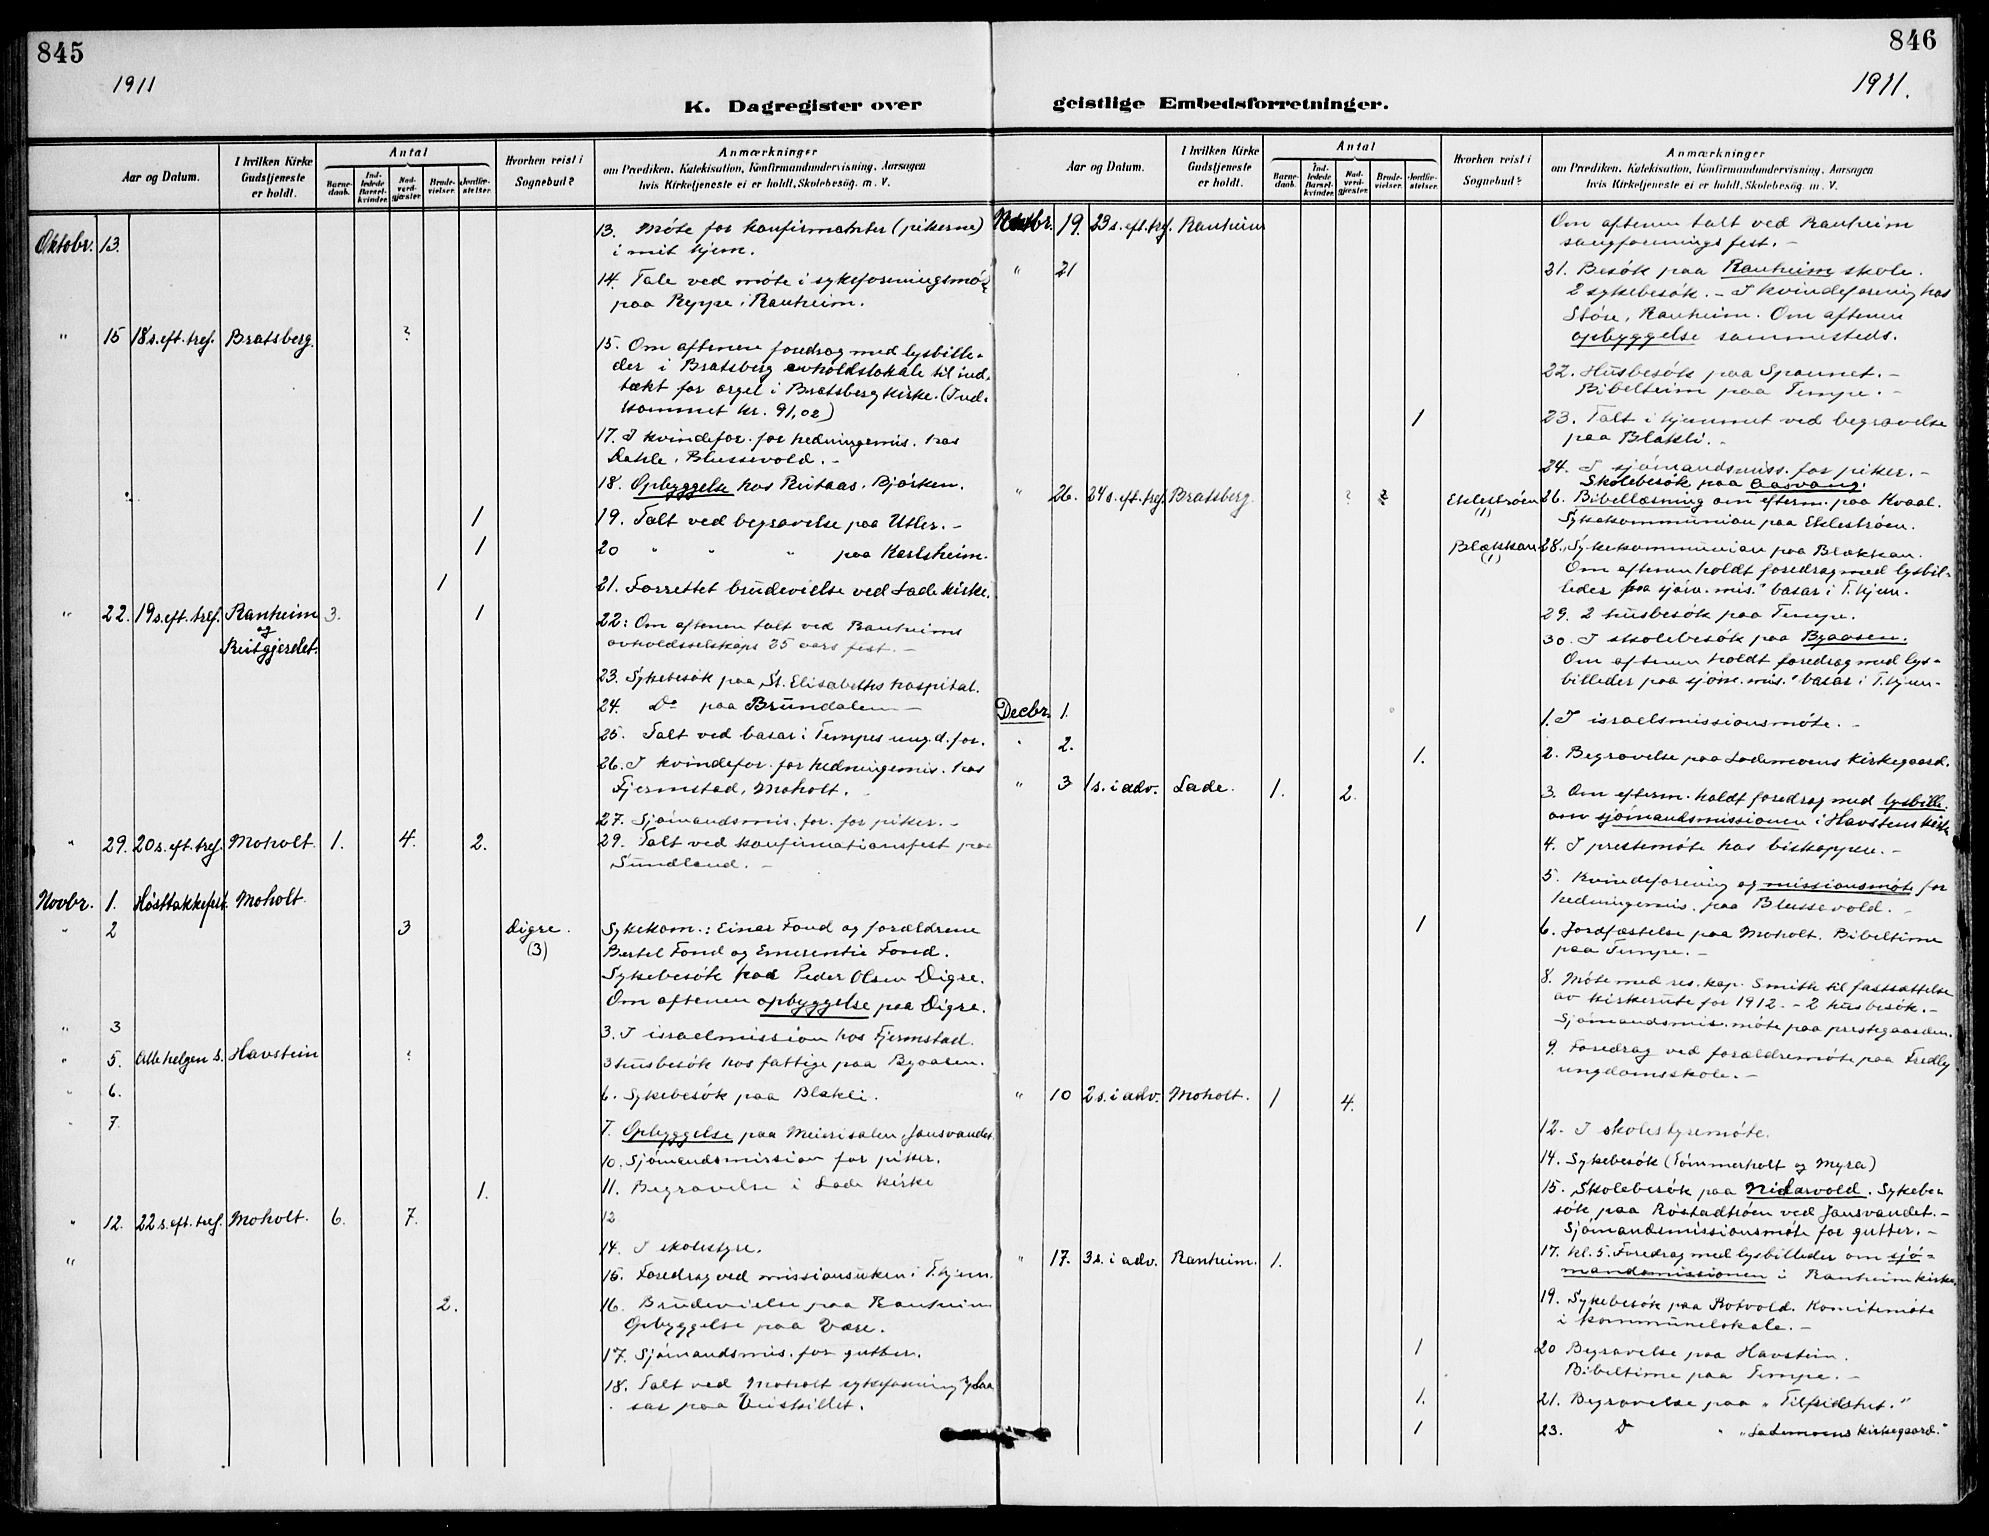 845
1911
K. Dagregister over
Aar og Datum.
I hvilken Kirke Gudstjeneste er holdt.
Antal
Barnedaab.
Indledede Barselkvinder.
Nadverdgjæster.
Brudevielser.
Jordfæstelser.
Hvorhen reist i Sognebud?
Anmærkninger
om Prædiken, Katekisation, Konfirmandundervisning, Aarsagen
hvis Kirketjeneste ei er holdt, Skolebesög. m. V.
Oktobr. 13.
13. Møte for konfirmanter (pikerne)
i mit hjem.
14. Tale ved møte i sykeforeningsmø-
paa Reppe i Ranheim.
" 15 18 s. eft. tref. Bratsberg. ?
15. Om aftenen foredrag med lysbille-
der i Bratsberg avholdslokale til ind-
tækt for orgel i Bratsberg kirke. (Ind-
kommet kr. 91,02)
17. I kvindefor. for hedningemis. hos
Dahle, Blussevold. -
18. Opbyggelse hos Reitaas, Bjørken.
1 19. Talt ved begravelse paa Utler. -
1 20 " " " paa Karlsheim.
1 21. Forrettet brudevielse ved Lade kirke.
" 22. 19 s. eft. tref. Ranheim 3. 1
og
Reitgjerdet.
22: Om aftenen talt ved Ranheims
avholdsselskaps 25 aars fest. -
23. Sykebesøk paa St. Elisabeths hospital.
24. Do paa Brundalen -
25. Talt ved basar i Tempes ung.d.for.
26. I kvindefor. for hedningemis. hos
Fjermstad, Moholt. -
27. Sjømandsmis. for. for piker. -
" 29. 20 s. eft. tref. Moholt 1. 4. 2.
29. Talt ved konfirmationsfest paa
Sundland. -
Novbr. 1. Høsttakkefest. Moholt
" 2 3 Digre.
(3)
Sykekom.: Einar Fond og forældrene
Bertel Fond og Emerentie Fond.
Sykebesøk hos Peder Olsen Digre.
Om aftenen opbyggelse paa Digre.
" 3
3. I israelmission hos Fjermstad.
" 5. Alle helgen s. Havstein ?
3 husbesøk hos fattige paa Byaasen.
" 6.
6. Sykebesøk paa Blakli.
" 7.
7. Opbyggelse paa Meierisalen, Jonsvandet.
10. Sjømandsmission for piker.
1. 11. Begravelse i Lade kirke
" 12. 22 s. eft. tref. Moholt. 6. 7.
12
14. I skolestyre.
"
15. Foredrag ved missionsuken i T.hjem.
2. 16. Brudevielse paa Ranheim
Opbyggelse paa Være.
17. Sjømandsmis. for gutter.
18. Talt ved Moholt sykeforening
sar paa
846
1911.
geistlige Embedsforretninger.
Aar og Datum.
I hvilken Kirke Gudstjeneste er holdt.
Antal
Barnedaab.
Indledede Barselkvinder.
Nadverdgjæster.
Brudevielser.
Jordfæstelser.
Hvorhen reist i Sognebud?
Anmærkninger
om Prædiken, Katekisation, Konfirmandundervisning, Aarsagen
hvis Kirketjeneste ei er holdt, Skolebesög. m. V.
Novbr. 19. 23 s. eft. tref. Ranheim
Om aftenen talt ved Ranheim
sangforenings fest. -
" 21
21. Besøk paa Ranheim skole.
2 sykebesøk. - I kvindeforening hos
Støre, Ranheim. Om aftenen
opbyggelse sammesteds.
22. Husbesøk paa Spannet. -
Bibeltime paa Tempe. -
1 23. Talt i hjemmet ved begravelse
paa Blakli. -
24. I sjømandsmiss. for piker. -
Skolebesøk paa Aasvang.
" 26. 24 s. eft. tref. Bratsberg ? ? Eklestrøen
(1)
26. Bibellæsning om efterm. paa Kvaal.
Sykekommunion paa Eklestrøen.
Blækkan
(1)
28. Sykekommunion paa Blækkan.
Om aftenen holdt foredrag med lysbil-
leder paa "sjøm. mis." basar i T.hjem.
29. 2 husbesøk paa Tempe.
30. I skolebesøk paa Byaasen.
Om aftenen holdt foredrag med lys-
billeder paa "sjøm. mis." basar i T.hjem.
Decbr. 1.
1. I israelsmissionsmøte. -
" 2. 1.
2. Begravelse paa Lademoens kirkegaard.
" 3 1 s. i adv. Lade. 1. 2.
3. Om efterm. holdt foredrag med lysbille.
om sjømandsmissionen i Havstens kirke
4. I prestemøte hos biskoppen. -
5. Kvindeforening og missionsmøte for
hedningemis. paa Blussevold. -
1 6. Jordfæstelse paa Moholt. Bibeltime
paa Tempe. -
8. Møte med res. kap. Smith til fastsættelse
av kirkerute for 1912. - 2 husbesøk. -
Sjømandsmis. møte paa prestegaarden.
9. Foredrag ved forældremøte paa Fredly
ungdomsskole. -
" 10 2 s. i adv. Moholt. 1 4.
12. I skolestyremøte.
14. Sykebesøk (Tømmerholt og Myra)
15. Skolebesøk paa Nidarvold. Sykebe-
søk paa Røstadtrøen ved Jonsvandet. -
Sjømandsmissionsmøte for gutter. -
" 17. 3 s. i adv. Ranheim. 1.
17. kl. 5. Foredrag med lysbilleder om sjø-
mandsmissionen i Ranheim kirke.
19. Sykebesøk paa Rotvold. Komitemøte
i kommunelokale. -
1 20 Begravelse paa Havstein.
Bibeltime paa Tempe. -
1. 21. Begravelse paa "Tilfredshet."
1 23. Do " "Lademoens kirkegaard."